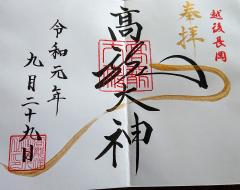 越後長岡
奉拝
高龍大神
令和元年
九月二十九日